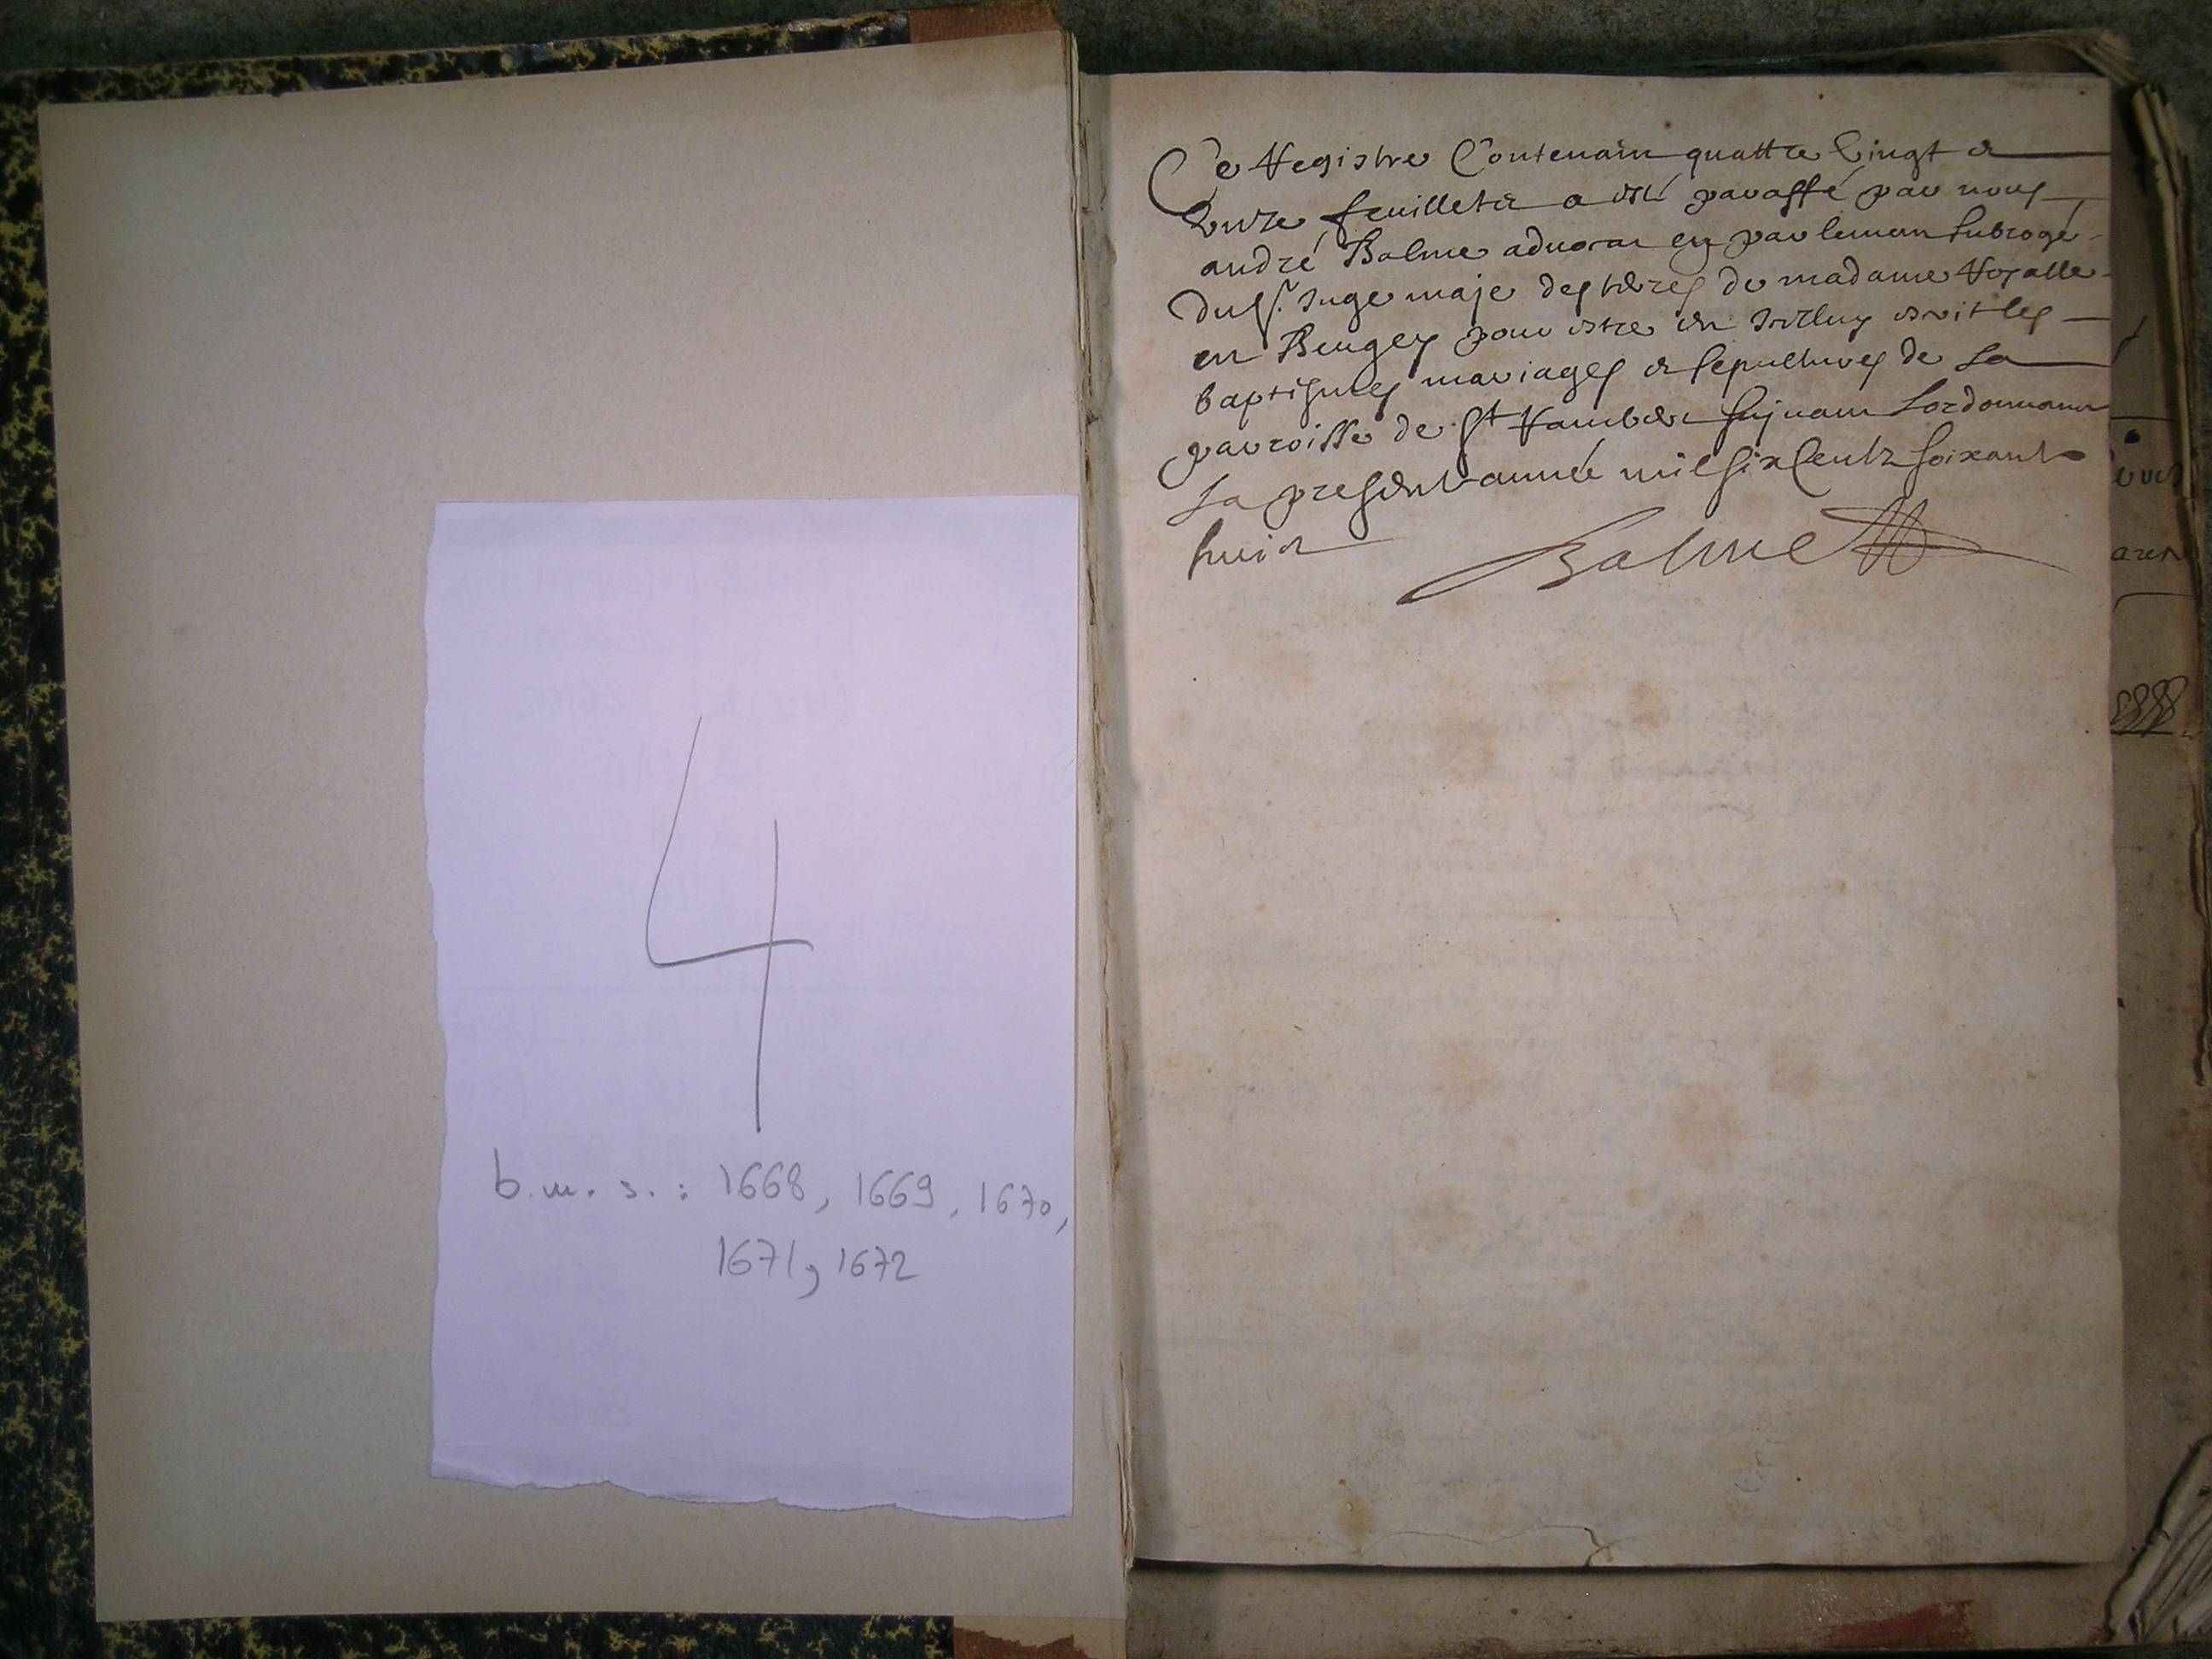 4
b.m.s.: 1668, 1669, 1670,
1671, 1672
Ce Registre Contenain quattre Vingt et
Unze feuilletz a esté paraffé par nous
andré Balme aduocat en parlement subrogé
du Sr. Juge maje des terres de madame Royalle
en Beugey pour estre en Icelluy escrit les
baptismes mariages et sepultures de La
parroisse de St Rambert suivant Lordonnance
La presente année mil six Centz soixante
huict
Balme